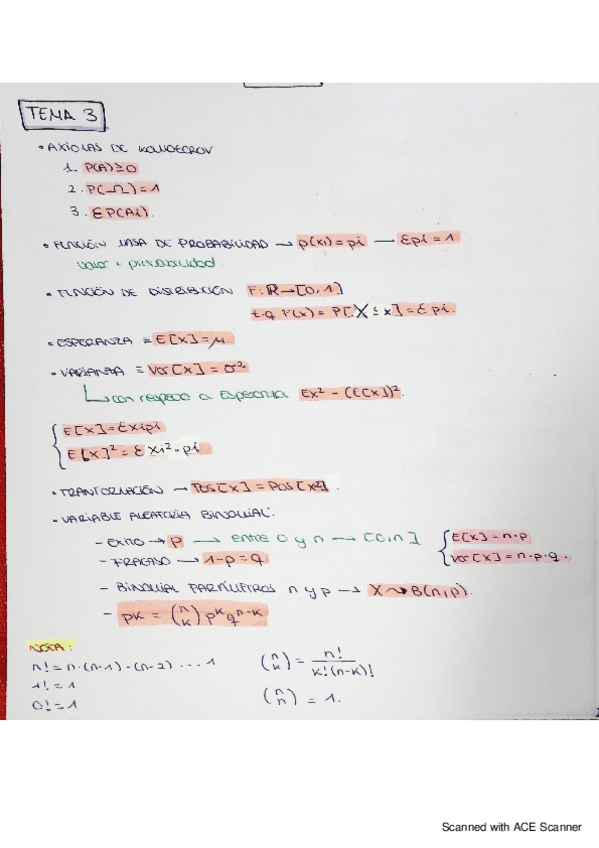 TEMA 3
• AXIOMAS DE KOLMOGROV
1. P(A)≥0
2. P(Ω)=1
3. ΣP(Ai).
• FUNCIÓN MASA DE PROBABILIDAD → p(xi)=pi — Σpi=1
valor + probabilidad.
• FUNCIÓN DE DISTRIBUCIÓN F:ℝ→[0,1]
t.q F(x) = P[X≤x] = Σpi.
• ESPERANZA = E[X]=μ.
• VARIANZA = Var[X]=σ²
↳ con respecto a Esperanza Ex² - (E[X])².
E[X]=Σxipi
E[X]²=Σ Xi²·pi
• VARIABLE ALEATORIA BINOMIAL.
- EXITO → p → entre 0 y n → [0,n] E[X]=n·p
- FRACASO → 1-p=q Var[X]=n·p·q.
- BINOMIAL PARÁMETROS n y p → X↝B(n,p).
- pk = (n k) p^k q^n-k
NOTA:
n! = n·(n-1)·(n-2) ··· 1 (n k) = n! / k!(n-k)!
1! = 1
0! = 1 (n n) = 1.
Scanned with ACE Scanner